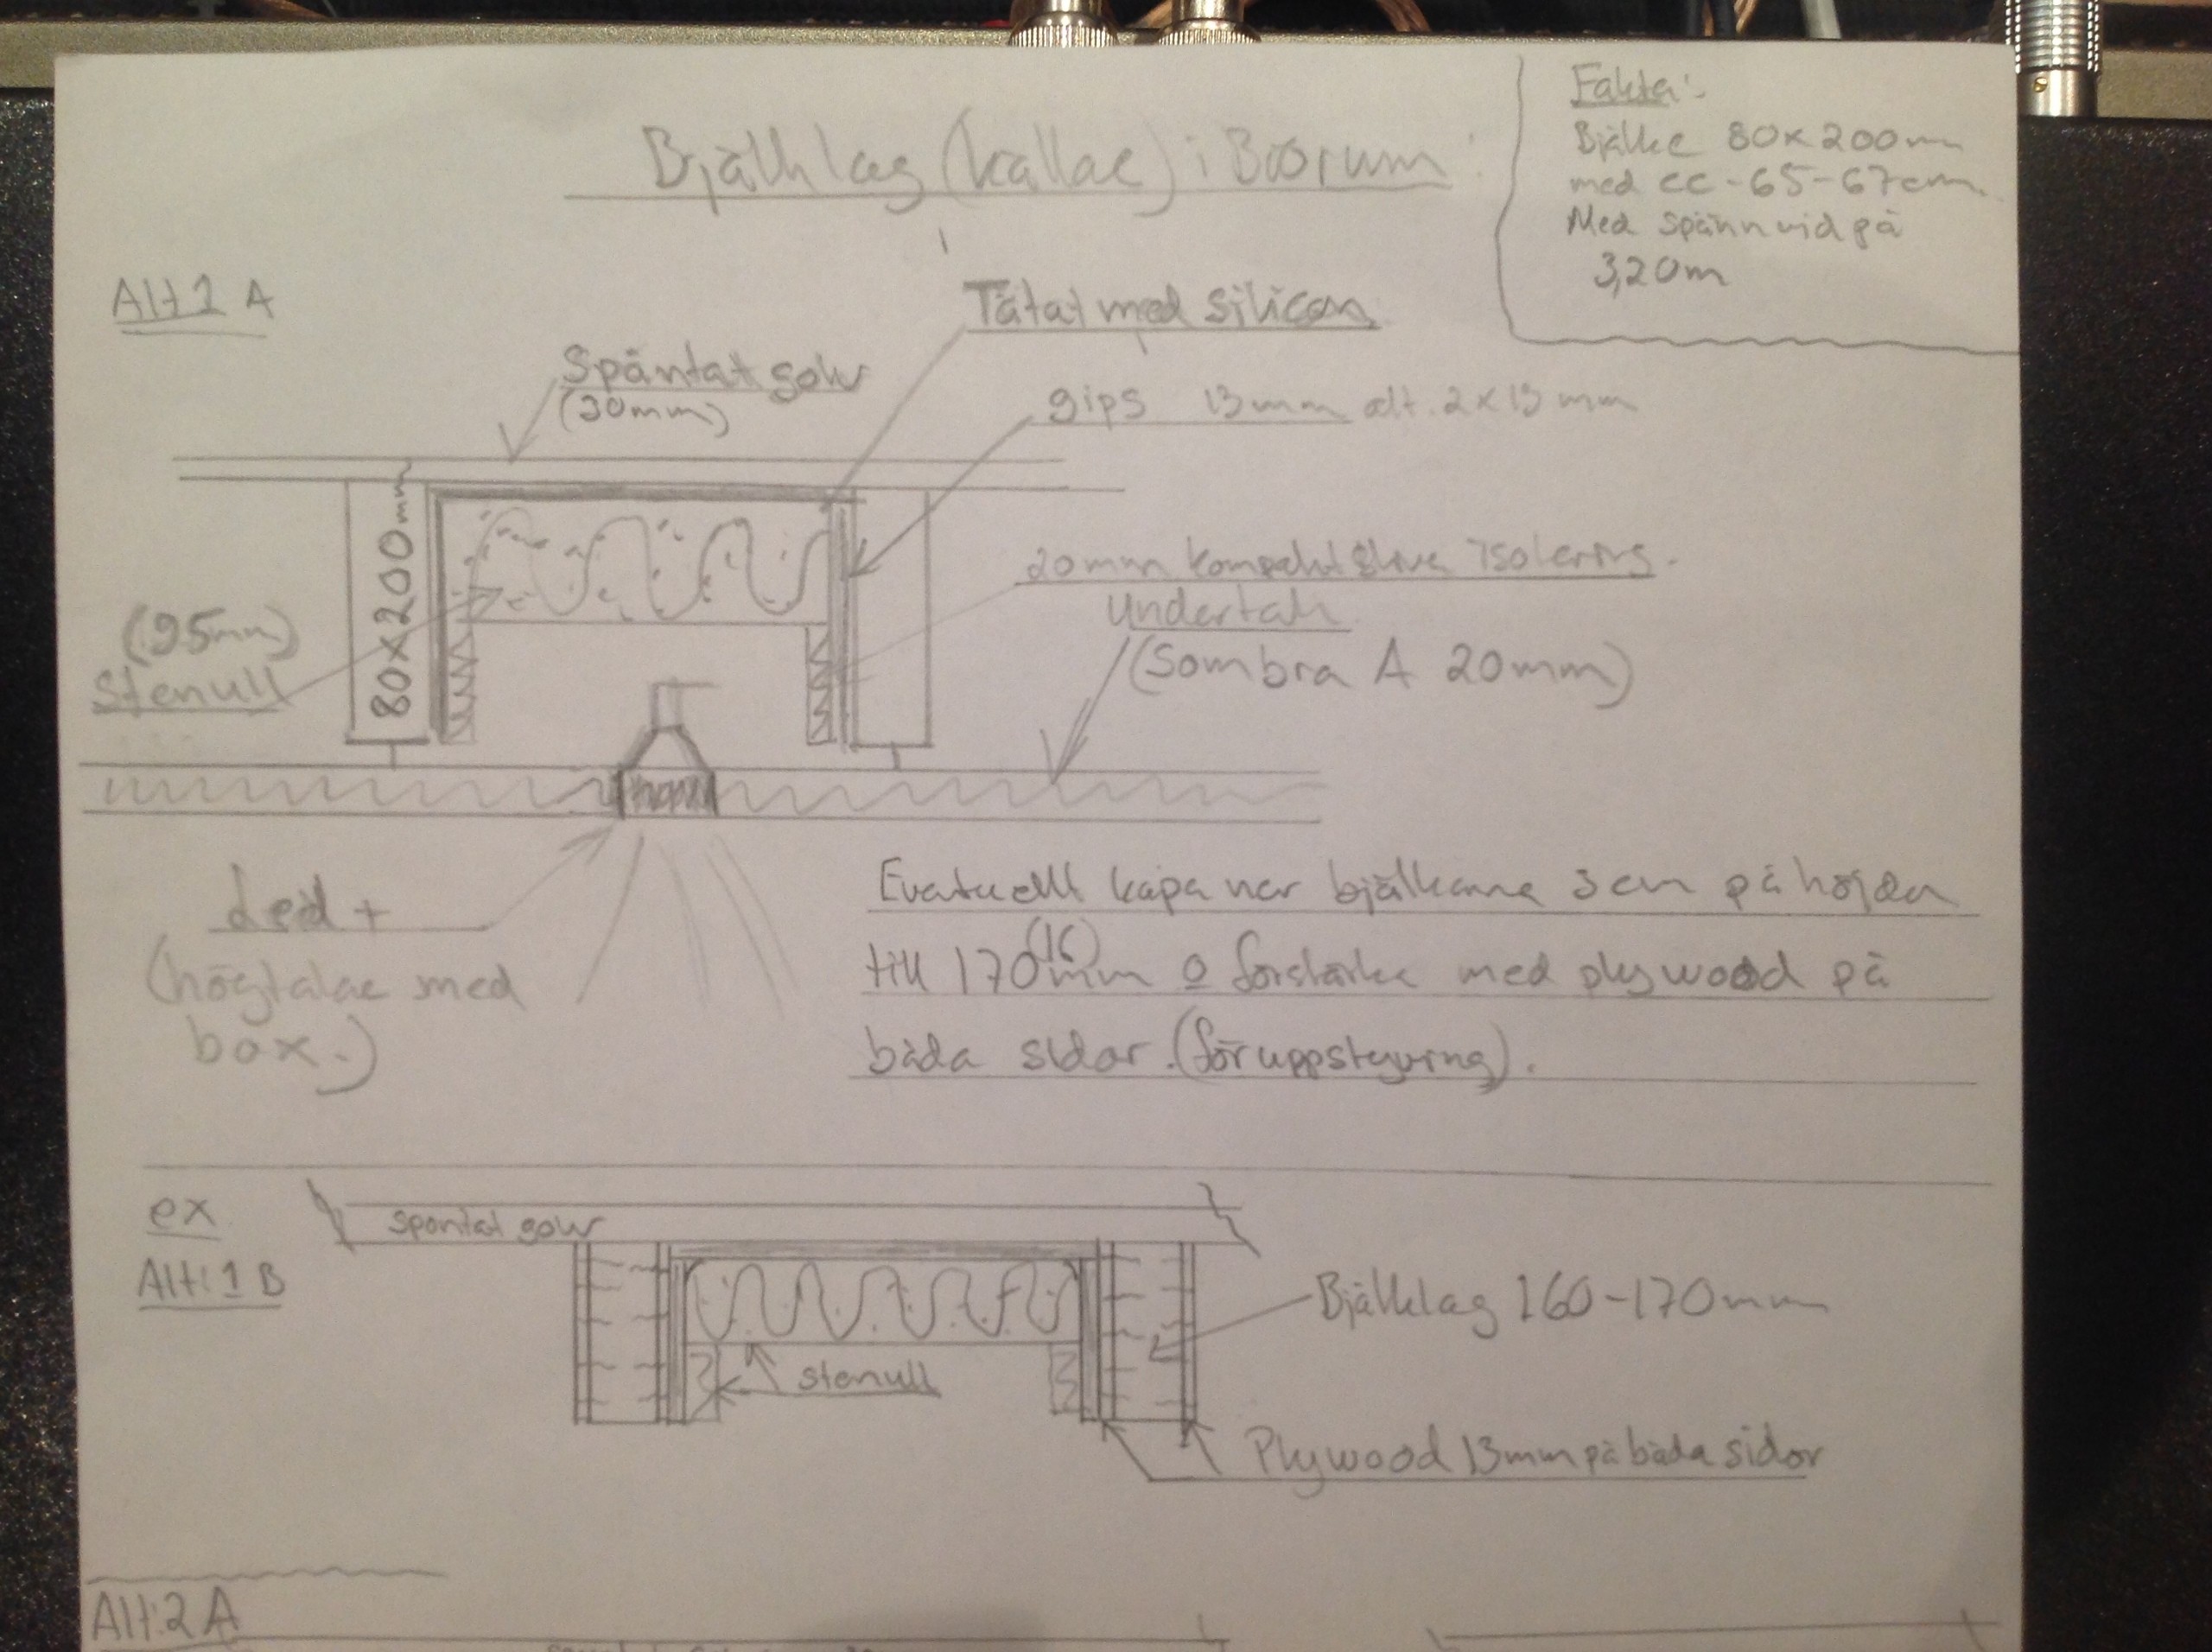 Fakta:
Bjälke 80x200mm
med cc-65-67cm.
Med spännvid på
3,20m
Bjälklag (källae) i Biorum:
Alt 1 A
Tätat med silicon
Späntat golv
(30mm)
gips 13mm alt. 2x13mm
80x200mm
20mm kompaktskiva isolering.
(95mm)
Stenull
Undertak
(Sombra A 20mm)
Led +
(högtalae med
box.)
Eventuellt kapa ner bjälkarna 3cm på höjden
(16)
till 170mm o förstärka med plywood på
båda sidor. (för uppstyvning).
ex
Alt: 1 B
spontat golv
Bjälklag 160-170mm
stenull
Plywood 13mm på båda sidor
Alt: 2 A